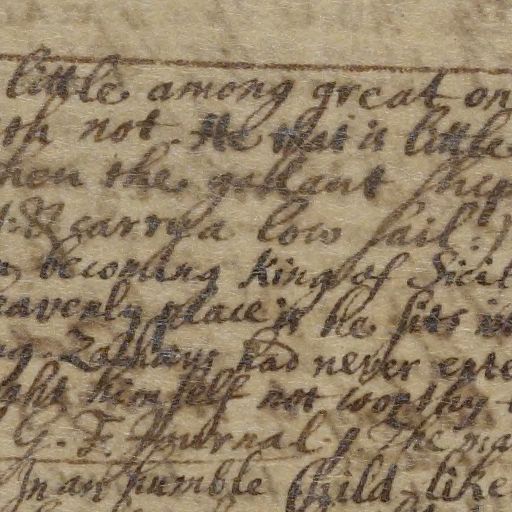 little among great on
th not. He that is little
hen the gallant ship
t. & carry a low sail.
n becoming King of Sicil
eavenly place is he sits in
Zacheus had never ente
ght himself not worthy t
G. F. Journal. The ma
In an humble Child-like